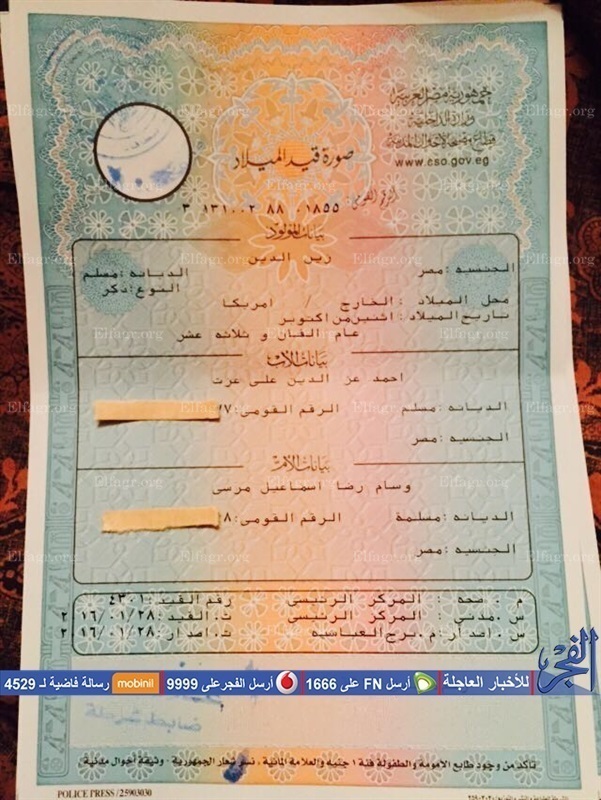 جمهورية مصر العربية
وزارة الداخلية
قطاع مصلحة الأحوال المدنية
www.cso.gov.eg
صورة قيد الميلاد
الرقم القومى:
٣ ١٣١٠٠٢ ٨٨ ٠١٨٥٥
بيانات المولود
زين الدين
الجنسيه :مصر
الديانه :مسلم
النوع :ذكر
محل الميلاد : الخارج / امريكا
تاريخ الميلاد : اثنين من اكتوبر
عام الفان و ثلاثه عشر
بيانات الأب
احمد عز الدين على عزت
الديانه :مسلم الرقم القومى:٧
الجنسيه :مصر
بيانات الأم
وسام رضا اسماعيل مرسى
الديانه :مسلمة الرقم القومى:٨
الجنسيه :مصر
م . صحه : المركز الرئيسى رقم القيد :٤٣٠١
س .مدنى : المركز الرئيسى ت. القيد :٢٠١٦/٠١/٢٨
س .اصدار :م .برج العباسيه ت. اصدار :٢٠١٦/٠١/٢٨
الفجر للأخبار العاجلة أرسل FN على 1666 أرسل الفجر على 9999 mobinil رسالة فاضية لـ 4529
ضابط شرطة
تأكد من وجود طابع الأمومة والطفولة فئة ١ جنيه والعلامة المائية ، نسر شعار الجمهورية - وثيقة أحوال مدنية
POLICE PRESS / 25903030
Elfagr.org